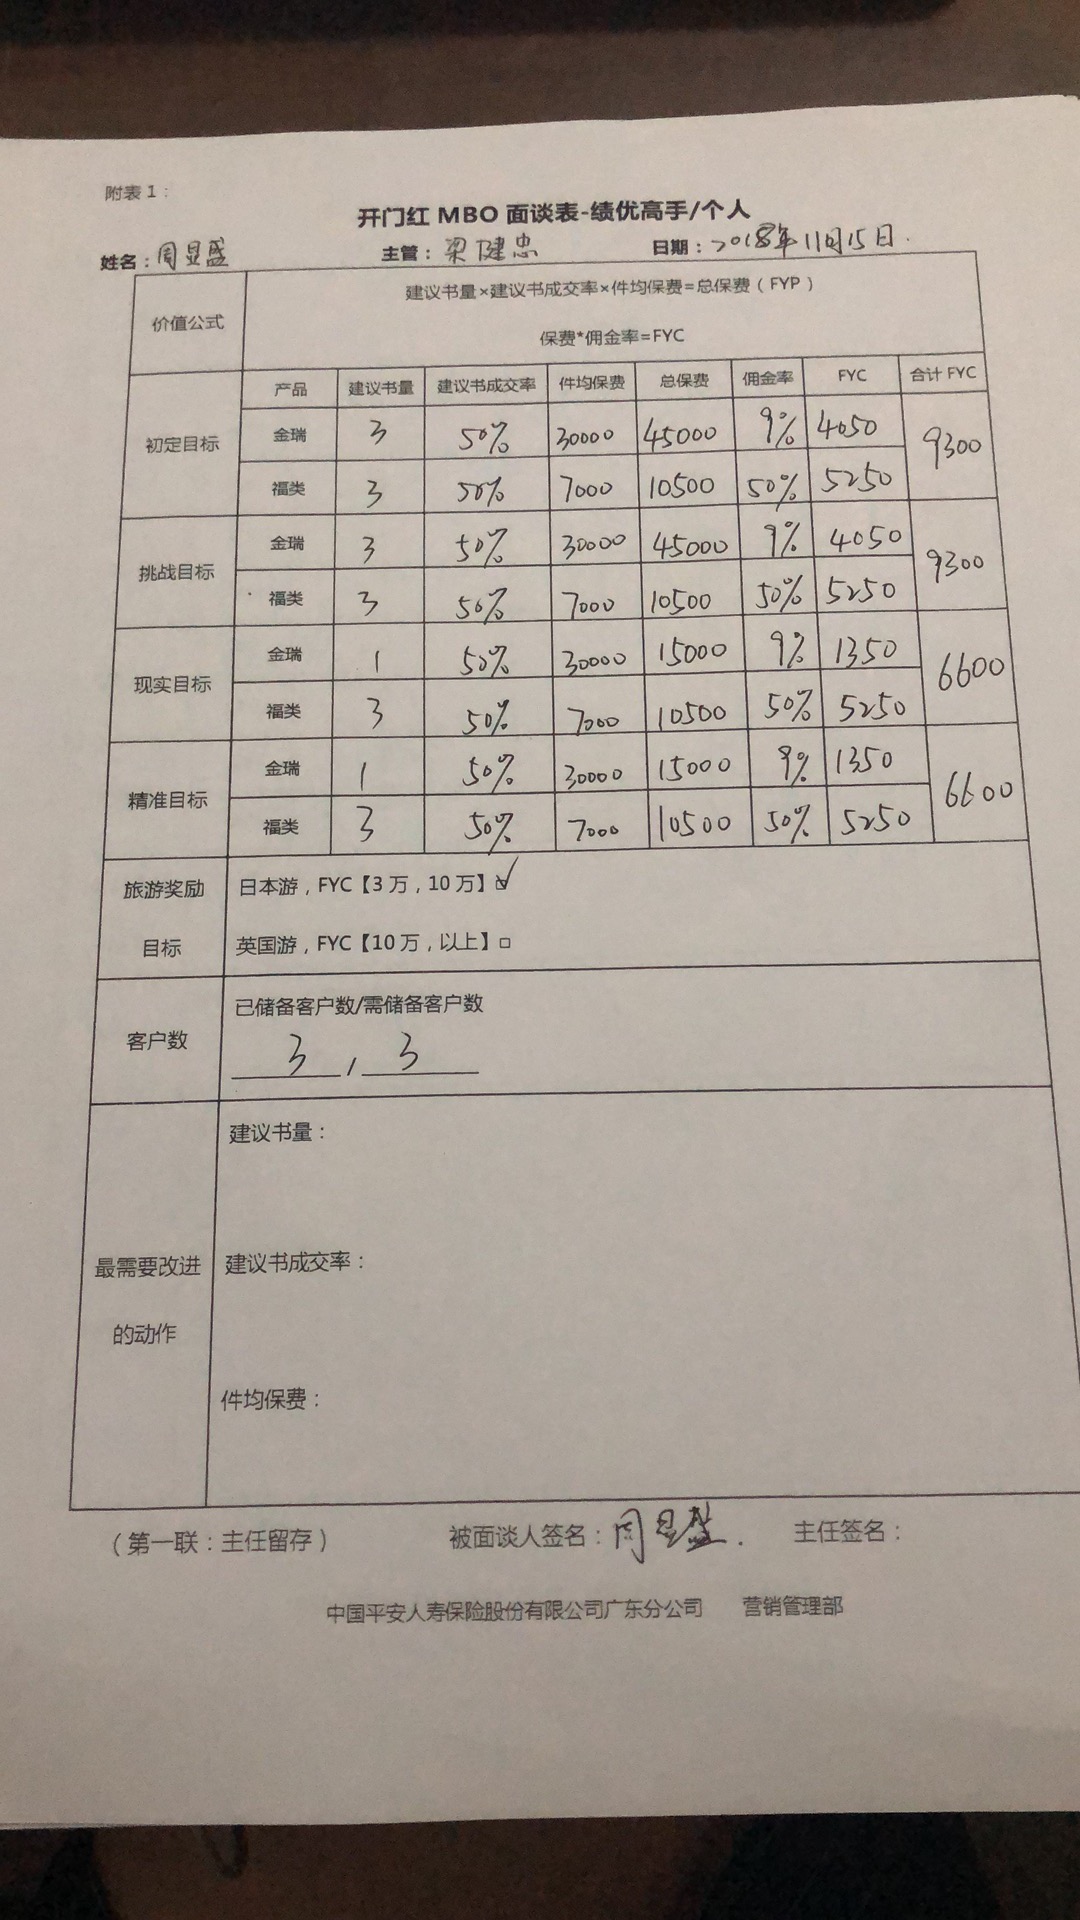 附表1：
开门红 MBO 面谈表-绩优高手/个人
姓名：周显盛 主管：梁健忠 日期：2018年11月15日.
价值公式
建议书量×建议书成交率×件均保费=总保费（FYP）
保费*佣金率=FYC
产品 建议书量 建议书成交率 件均保费 总保费 佣金率 FYC 合计 FYC
初定目标 金瑞 3 50% 30000 45000 9% 4050 9300
福类 3 50% 7000 10500 50% 5250
挑战目标 金瑞 3 50% 30000 45000 9% 4050 9300
福类 3 50% 7000 10500 50% 5250
现实目标 金瑞 1 50% 30000 15000 9% 1350 6600
福类 3 50% 7000 10500 50% 5250
精准目标 金瑞 1 50% 30000 15000 9% 1350 6600
福类 3 50% 7000 10500 50% 5250
旅游奖励 日本游，FYC【3万，10万】☑
目标 英国游，FYC【10万，以上】□
已储备客户数/需储备客户数
客户数 3 / 3
建议书量：
最需要改进 建议书成交率：
的动作
件均保费：
（第一联：主任留存） 被面谈人签名：周显盛. 主任签名：
中国平安人寿保险股份有限公司广东分公司 营销管理部